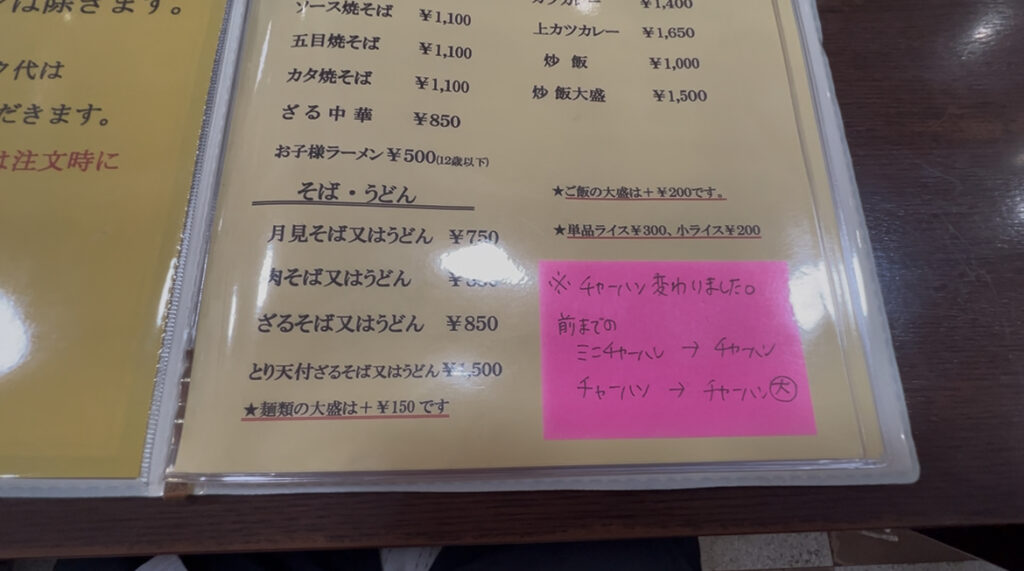 は除きます。
代は
だきます。
は注文時に
ソース焼そば ¥1,100
五目焼そば ¥1,100
カタ焼そば ¥1,100
ざる中華 ¥850
お子様ラーメン ¥500(12歳以下)
そば・うどん
月見そば又はうどん ¥750
肉そば又はうどん
ざるそば又はうどん ¥850
とり天付ざるそば又はうどん ¥1,500
★麺類の大盛は+¥150です
カツカレー ¥1,400
上カツカレー ¥1,650
炒飯 ¥1,000
炒飯大盛 ¥1,500
★ご飯の大盛は+¥200です。
★単品ライス¥300、小ライス¥200
※チャーハン変わりました。
前までの
ミニチャーハン → チャーハン
チャーハン → チャーハン㊅